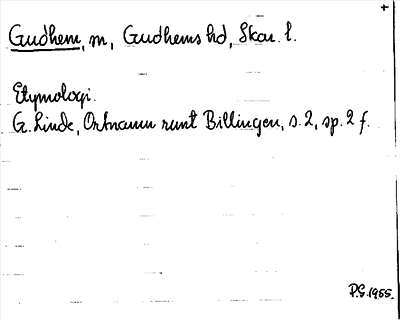 +
Gudhem, m, Gudhems hd, Skar. l.
Etymologi.
G. Linde, Ortnamn runt Billingen, s. 2, sp. 2 f.
P.G. 1955.